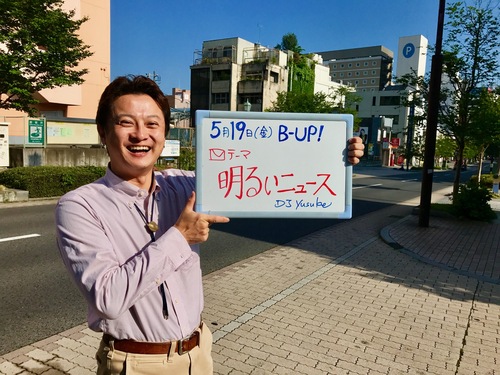 5月19日(金) B-UP!
テーマ
明るいニュース
DJ Yusuke
P